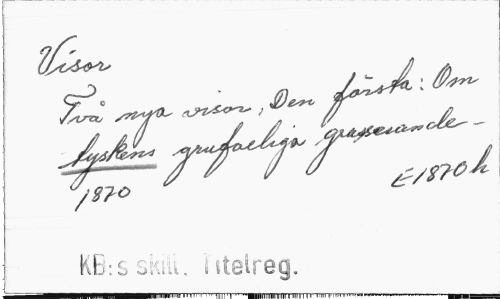 Visor
Två nya visor, Den första: Om
tyskens grufaeliga grasserande -
1870
E1870h
KB:s skill. Titelreg.